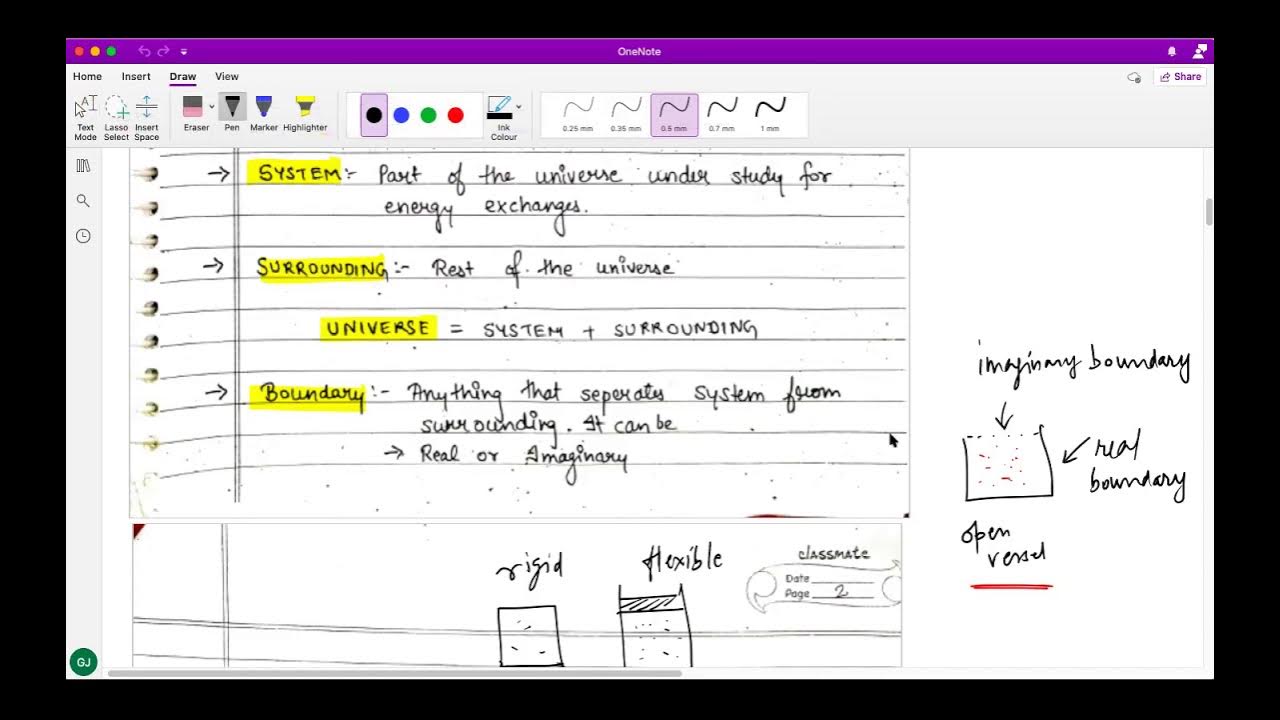 OneNote
Home Insert Draw View
Share
Text Mode
Lasso Select
Insert Space
Eraser
Pen
Marker
Highlighter
Ink Colour
0.25 mm
0.35 mm
0.5 mm
0.7 mm
1 mm
→ SYSTEM :- Part of the universe under study for
energy exchanges.
→ SURROUNDING :- Rest of the universe
UNIVERSE = SYSTEM + SURROUNDING
→ Boundary :- Anything that seperates system from
surrounding. It can be
→ Real or Imaginary
imaginary boundary
real
boundary
open
vessel
rigid
flexible
classmate
Date
Page 2
GJ